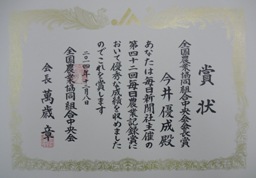 賞状
全国農業協同組合中央会会長賞
今井優成殿
あなたは毎日新聞社主催の
第四十二回毎日農業記録賞に
おいて優秀な成績を収めました
のでこれを賞します
二〇一四年十二月八日
全国農業協同組合中央会
会長 萬歳章